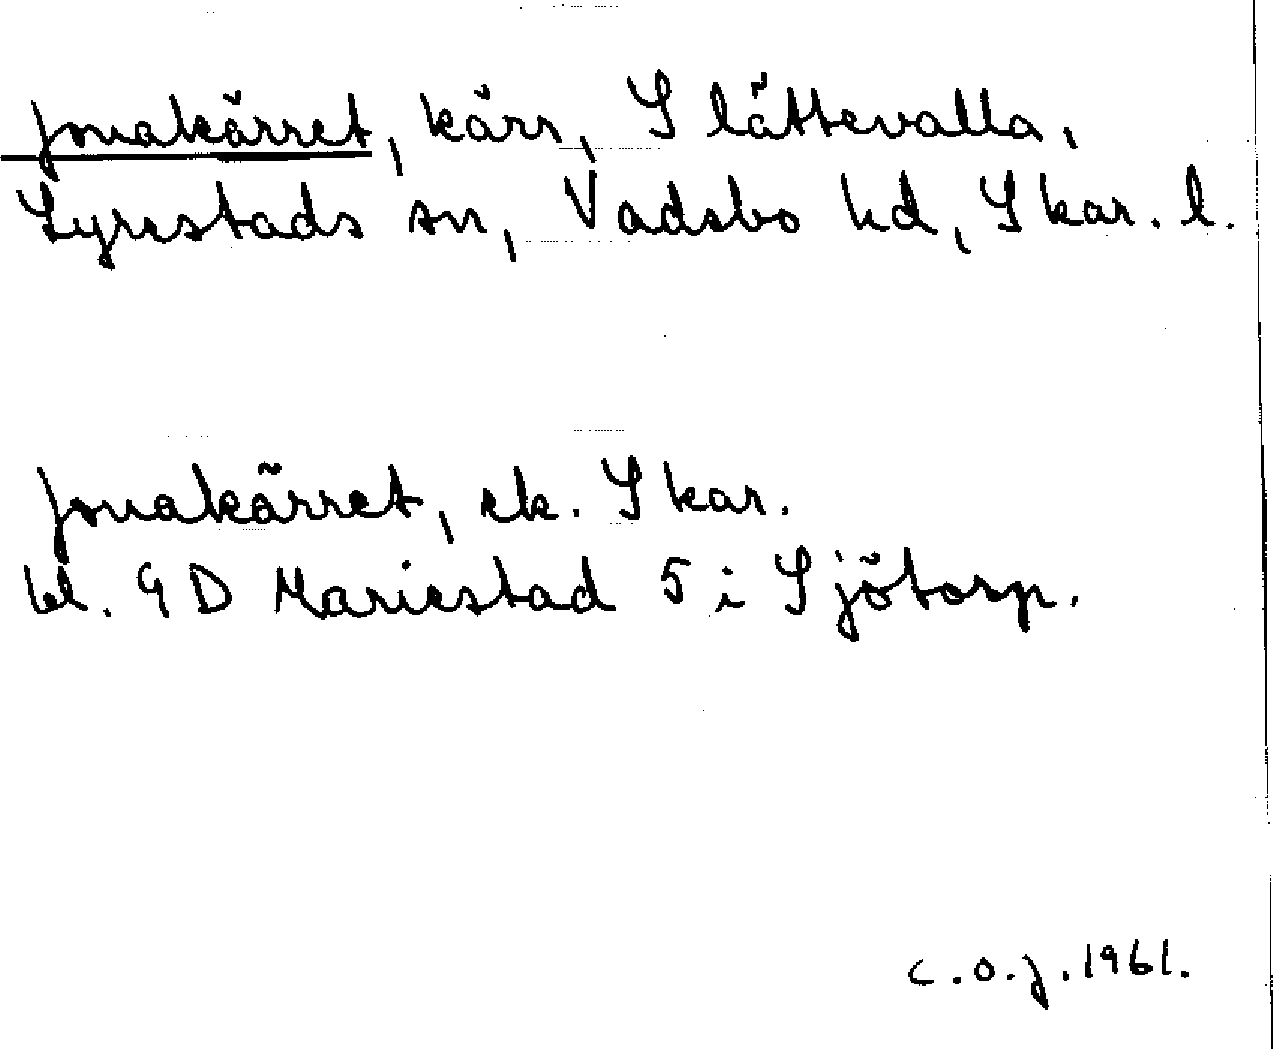 Jonakärret, kärr, Slättevalla,
Lyrestads sn, Vadsbo hd, Skar. l.
Jonakärret, ek. Skar.
bl. 9 D Mariestad 5 i Sjötorp.
C.O.J. 1961.